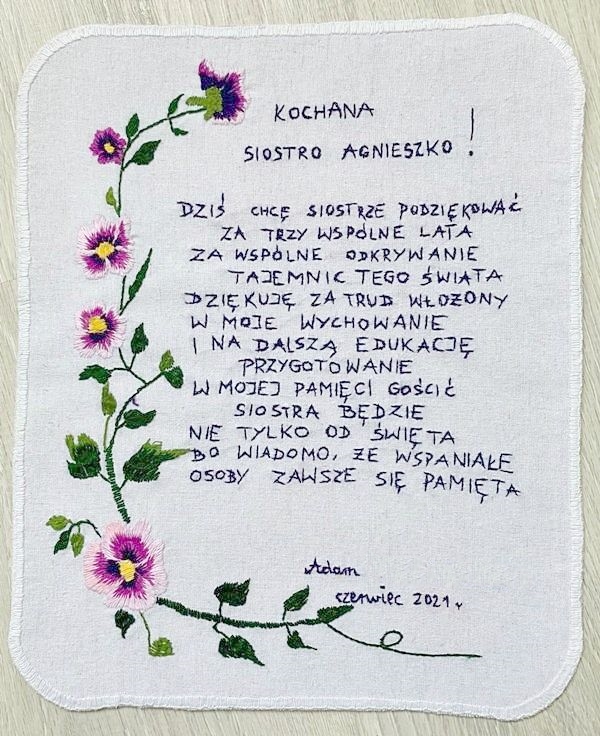 KOCHANA
SIOSTRO AGNIESZKO!
DZIŚ CHCĘ SIOSTRZE PODZIĘKOWAĆ
ZA TRZY WSPÓLNE LATA
ZA WSPÓLNE ODKRYWANIE
TAJEMNIC TEGO ŚWIATA
DZIĘKUJĘ ZA TRUD WŁOŻONY
W MOJE WYCHOWANIE
I NA DALSZĄ EDUKACJĘ
PRZYGOTOWANIE
W MOJEJ PAMIĘCI GOŚCIĆ
SIOSTRA BĘDZIE
NIE TYLKO OD ŚWIĘTA
BO WIADOMO, ŻE WSPANIAŁE
OSOBY ZAWSZE SIĘ PAMIĘTA
Adam
czerwiec 2021 r